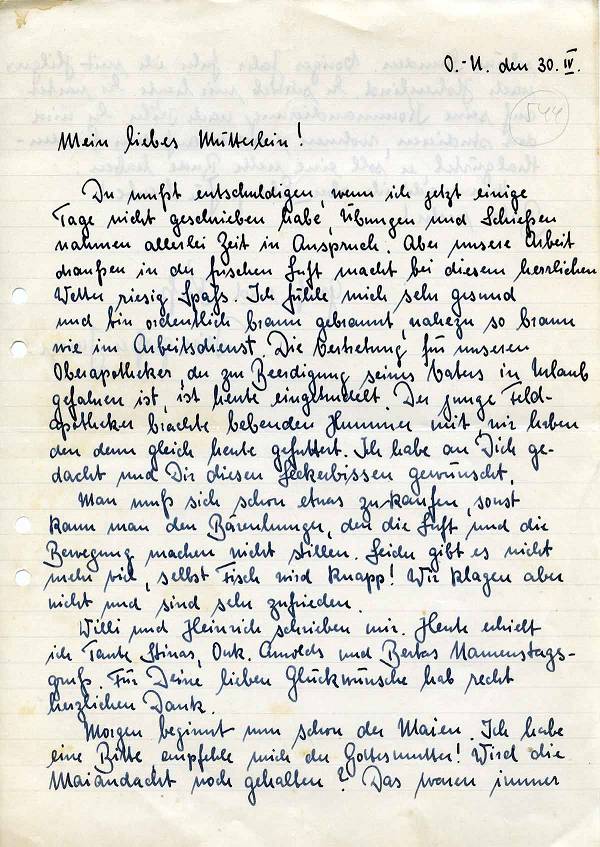 O.-U. den 30. IV.
544
Mein liebes Mütterlein!
Du mußt entschuldigen, wenn ich jetzt einige
Tage nicht geschrieben habe, Übungen und Schießen
nahmen allerlei Zeit in Anspruch. Aber unsere Arbeit
draußen in der frischen Luft macht bei diesem herrlichen
Wetter riesig Spaß. Ich fühle mich sehr gesund
und bin ordentlich braun gebrannt, nahezu so braun
wie im Arbeitsdienst. Die Vertretung für unseren
Oberapotheker, der zur Beerdigung seines Vaters in Urlaub
gefahren ist, ist heute eingetrudelt. Der junge Feld-
apotheker brachte lebenden Hummer mit, wir haben
den denn gleich heute gefuttert. Ich habe an Dich ge-
dacht und Dir diesen Leckerbissen gewünscht.
Man muß sich schon etwas zu kaufen, sonst
kann man den Bärenhunger, den die Luft und die
Bewegung machen nicht stillen. Leider gibt es nicht
mehr viel, selbst Fisch wird knapp! Wir klagen aber
nicht und sind sehr zufrieden.
Willi und Heinrich schrieben mir. Heute erhielt
ich Tante Stinas, Onk. Arnolds und Bertas Namenstags-
gruß. Für Deine lieben Glückwünsche hab recht
herzlichen Dank.
Morgen beginnt nun schon der Maien. Ich habe
eine Bitte, empfehle mich der Gottesmutter! Wird die
Maiandacht noch gehalten? Das waren immer